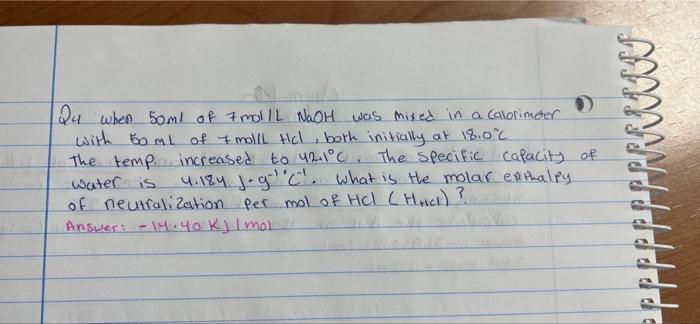 Q4 when 50ml of 7mol/L NaOH was mixed in a calorimeter
with 50 mL of 7mol/L Hcl, both initially at 18.0°C
The temp. increased to 42.1°C. The specific capacity of
water is 4.184 J.g⁻¹°C⁻¹. What is the molar enthalpy
of neutralization per mol of HCl (HHCl)?
Answer: -14.40 KJ/mol